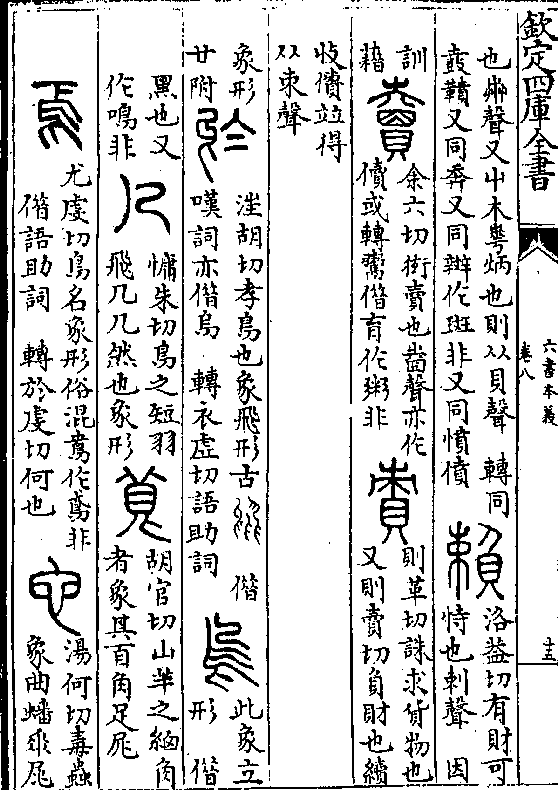 欽定四庫全書
六書本義
卷八
十五
也卉聲又屮木炳也則从貝聲 轉同
鞼又同奔又同辦作斑非又同憤僨
賴
洛葢切有財可
恃也剌聲 因
訓
藉
賣
余六切衒賣也聲亦作
儥或轉鬻借育作粥非
責
則革切誅求貨物也
又則賣切負財也續
收債竝得
从朿聲
象形
廿附
於
汪胡切孝鳥也象飛形古 借
嘆詞亦借烏 轉衣虛切語助詞
烏
此象立
形 借
黑也又
作嗚非
几
慵朱切鳥之短羽
飛几几然也象形
萈
胡官切山羊之細角
者象其首角足尾
焉
尤虔切鳥名象形俗混鳶作鳶非
借語助詞 轉於虔切何也
它
湯何切毒蟲
象曲蟠垂尾